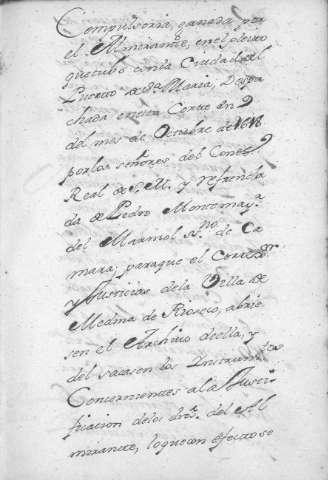 Compulsoria, ganada por
el Almirante, en el pleito
que tubo con la Ciudad del
Puerto de Sta. Maria, Despa
chada en esta Corte en 9
del mes de Octubre de 1618
por los señores del Consº
Real de S. M. y refrenda
da de Pedro Montemayr.
del Marmol Sno. de Ca
mara, para que el Corregdr.
y Justicias de la Villa de
Medina de Rioseco, abrie
sen el Archivo de ella, y
del sacasen los Instrumtos
Concernientes a la Justi
ficacion de los dros. del Al
mirante, lo que con efecto se